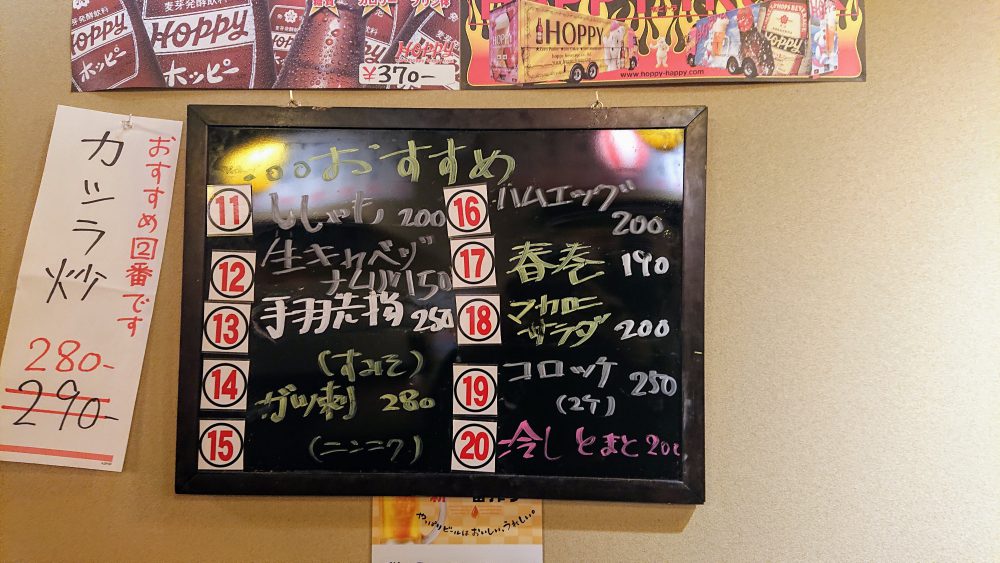 麦芽発酵飲料
HOPPY
ホッピー
HOPPY
ホッピー
¥370-
HOPPY
www.hoppy-happy.com
おすすめ②番です
カシラ炒
280-
290-
...おすすめ
⑪ ししゃも 200
⑫ 生キャベツ
ナムル 150
⑬ 手羽先揚 250
⑭ (すみそ)
ガツ刺 280
⑮ (ニンニク)
⑯ ハムエッグ
200
⑰ 春巻 190
⑱ マカロニ
サラダ 200
⑲ コロッケ 250
(2ケ)
⑳ 冷しとまと 200
やっぱりビールはおいしい、うれしい。